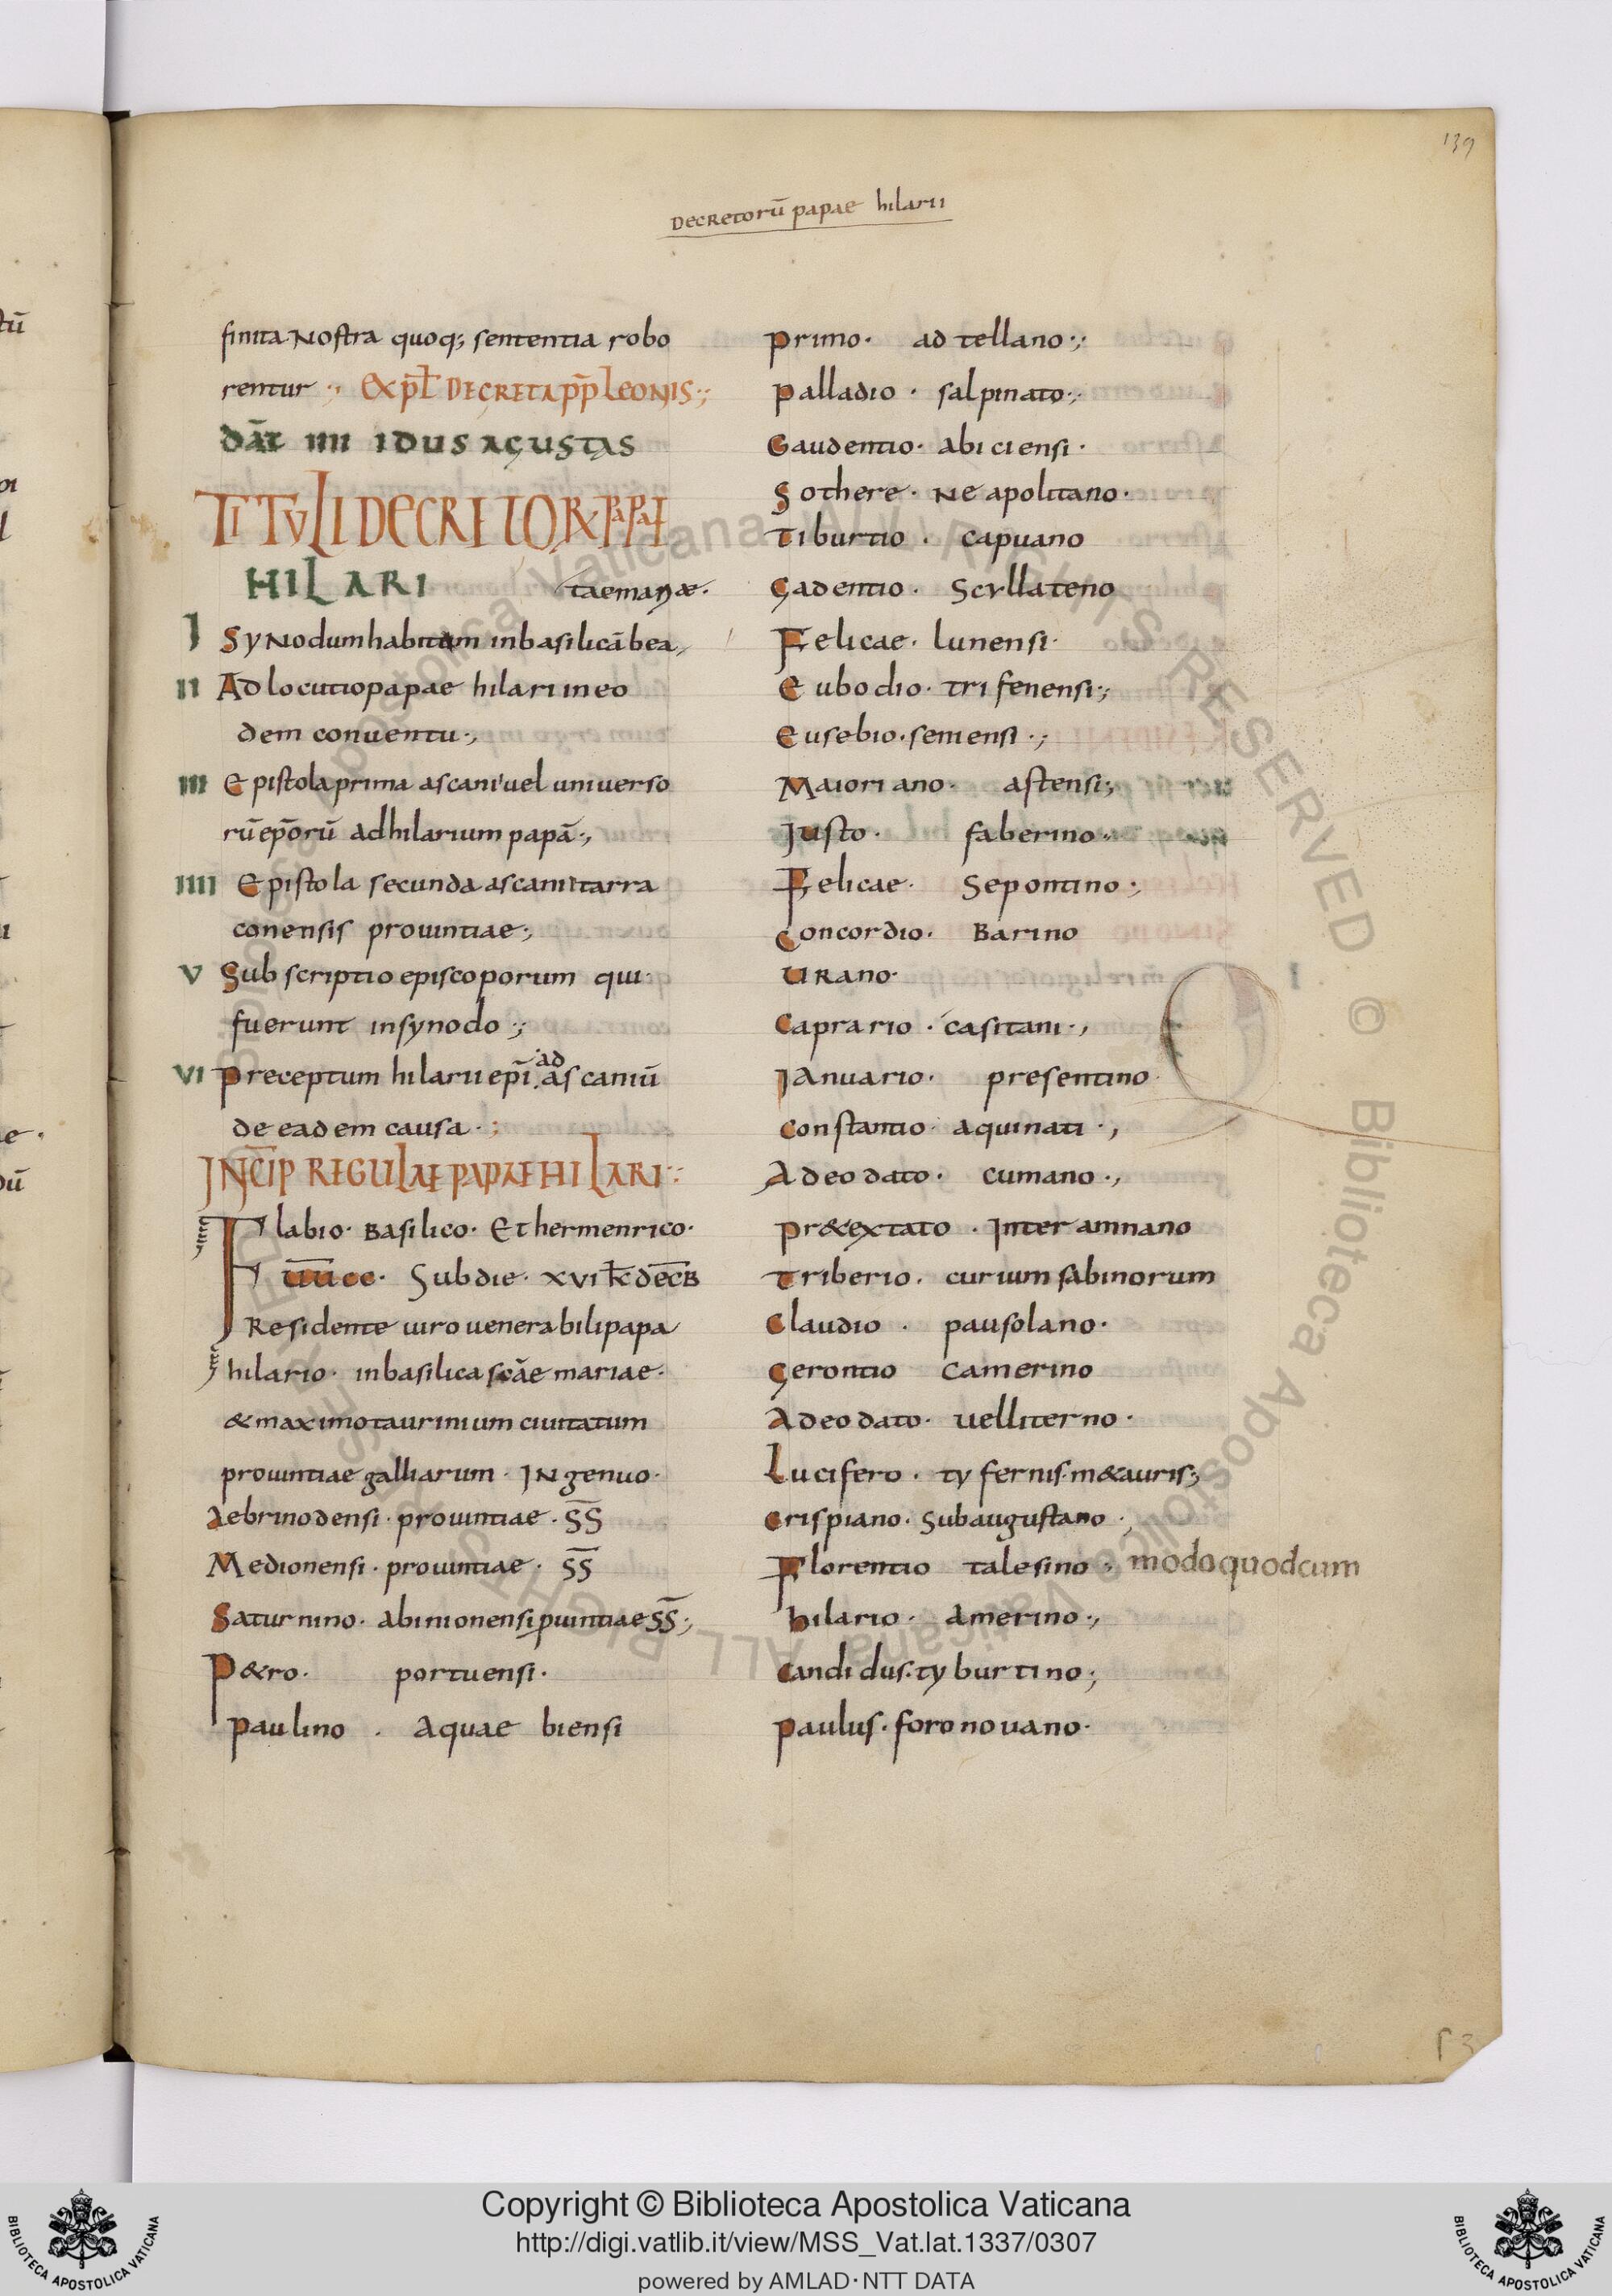 139
Decretorū papae hilarii
finita Nostra quoq; sententia robo
rentur ·; Expł DECRETA p̄p LEONIS·;
DAT̄ IIII IDUS AGUSTAS
TITVLI DECRETOR PAPAE
HILARI
tae mariae.
I Synodum habitam in basilicā bea
II Adlocutio papae hilari in eo
dem conuentu·;
III Epistola prima ascani uel uniuerso
rū ep̄orū ad hilarium papā·;
IIII Epistola secunda ascani tarra
conensis prouintiae·;
V Subscriptio episcoporum qui
fuerunt in synodo·;
VI Preceptum hilarii ep̄i ad ascaniū
de eadem causa·:
INCIP̄ REGULAE PAPAE HILARI·:
Flabio· Basilico· Et hermenrico·
ūūcc· Sub die· xvi k̄ dec̄b
Residente uiro uenerabili papa
hilario· in basilica sc̄ae mariae·
& maximo taurinium ciuitatum
prouintiae galliarum· INgenuo·
Aebrinodensi· prouintiae· S̄S̄
Medionensi· prouintiae· S̄S̄
Saturnino· abinionensi puintiae S̄S̄·;
P&ro· portuensi·
Paulino· Aquae biensi
Primo· ad tellano·;
Palladio· salpinato·;
Gaudentio· abiciensi·
Sothere· Neapolitano·
Tiburtio· capuano
Gadentio· Scyllateno
Felicae· lunensi·
Eubodio· trifenensi·;
Eusebio· seniensi·;
Maioriano· astensi·;
Justo· faberino·
Felicae· Sepontino·;
Concordio· Barino
Urano·
Caprario· casitani·,
Januario· presentino·
Constantio· aquinati·,
Adeodato· cumano·,
Pr&extato· Interamnano
Triberio· curium sabinorum
Claudio· pausolano·
Gerontio Camerino
Adeodato· uelliterno·
Lucifero· tyfernis· m&auris·;
Crispiano· Subaugustano·,
Florentio talesino· modoquodcum
hilario· Amerino·,
Candidus· tyburtino;
Paulus· foronouano·
Copyright © Biblioteca Apostolica Vaticana
http://digi.vatlib.it/view/MSS_Vat.lat.1337/0307
powered by AMLAD·NTT DATA
BIBLIOTECA APOSTOLICA VATICANA
BIBLIOTECA APOSTOLICA VATICANA